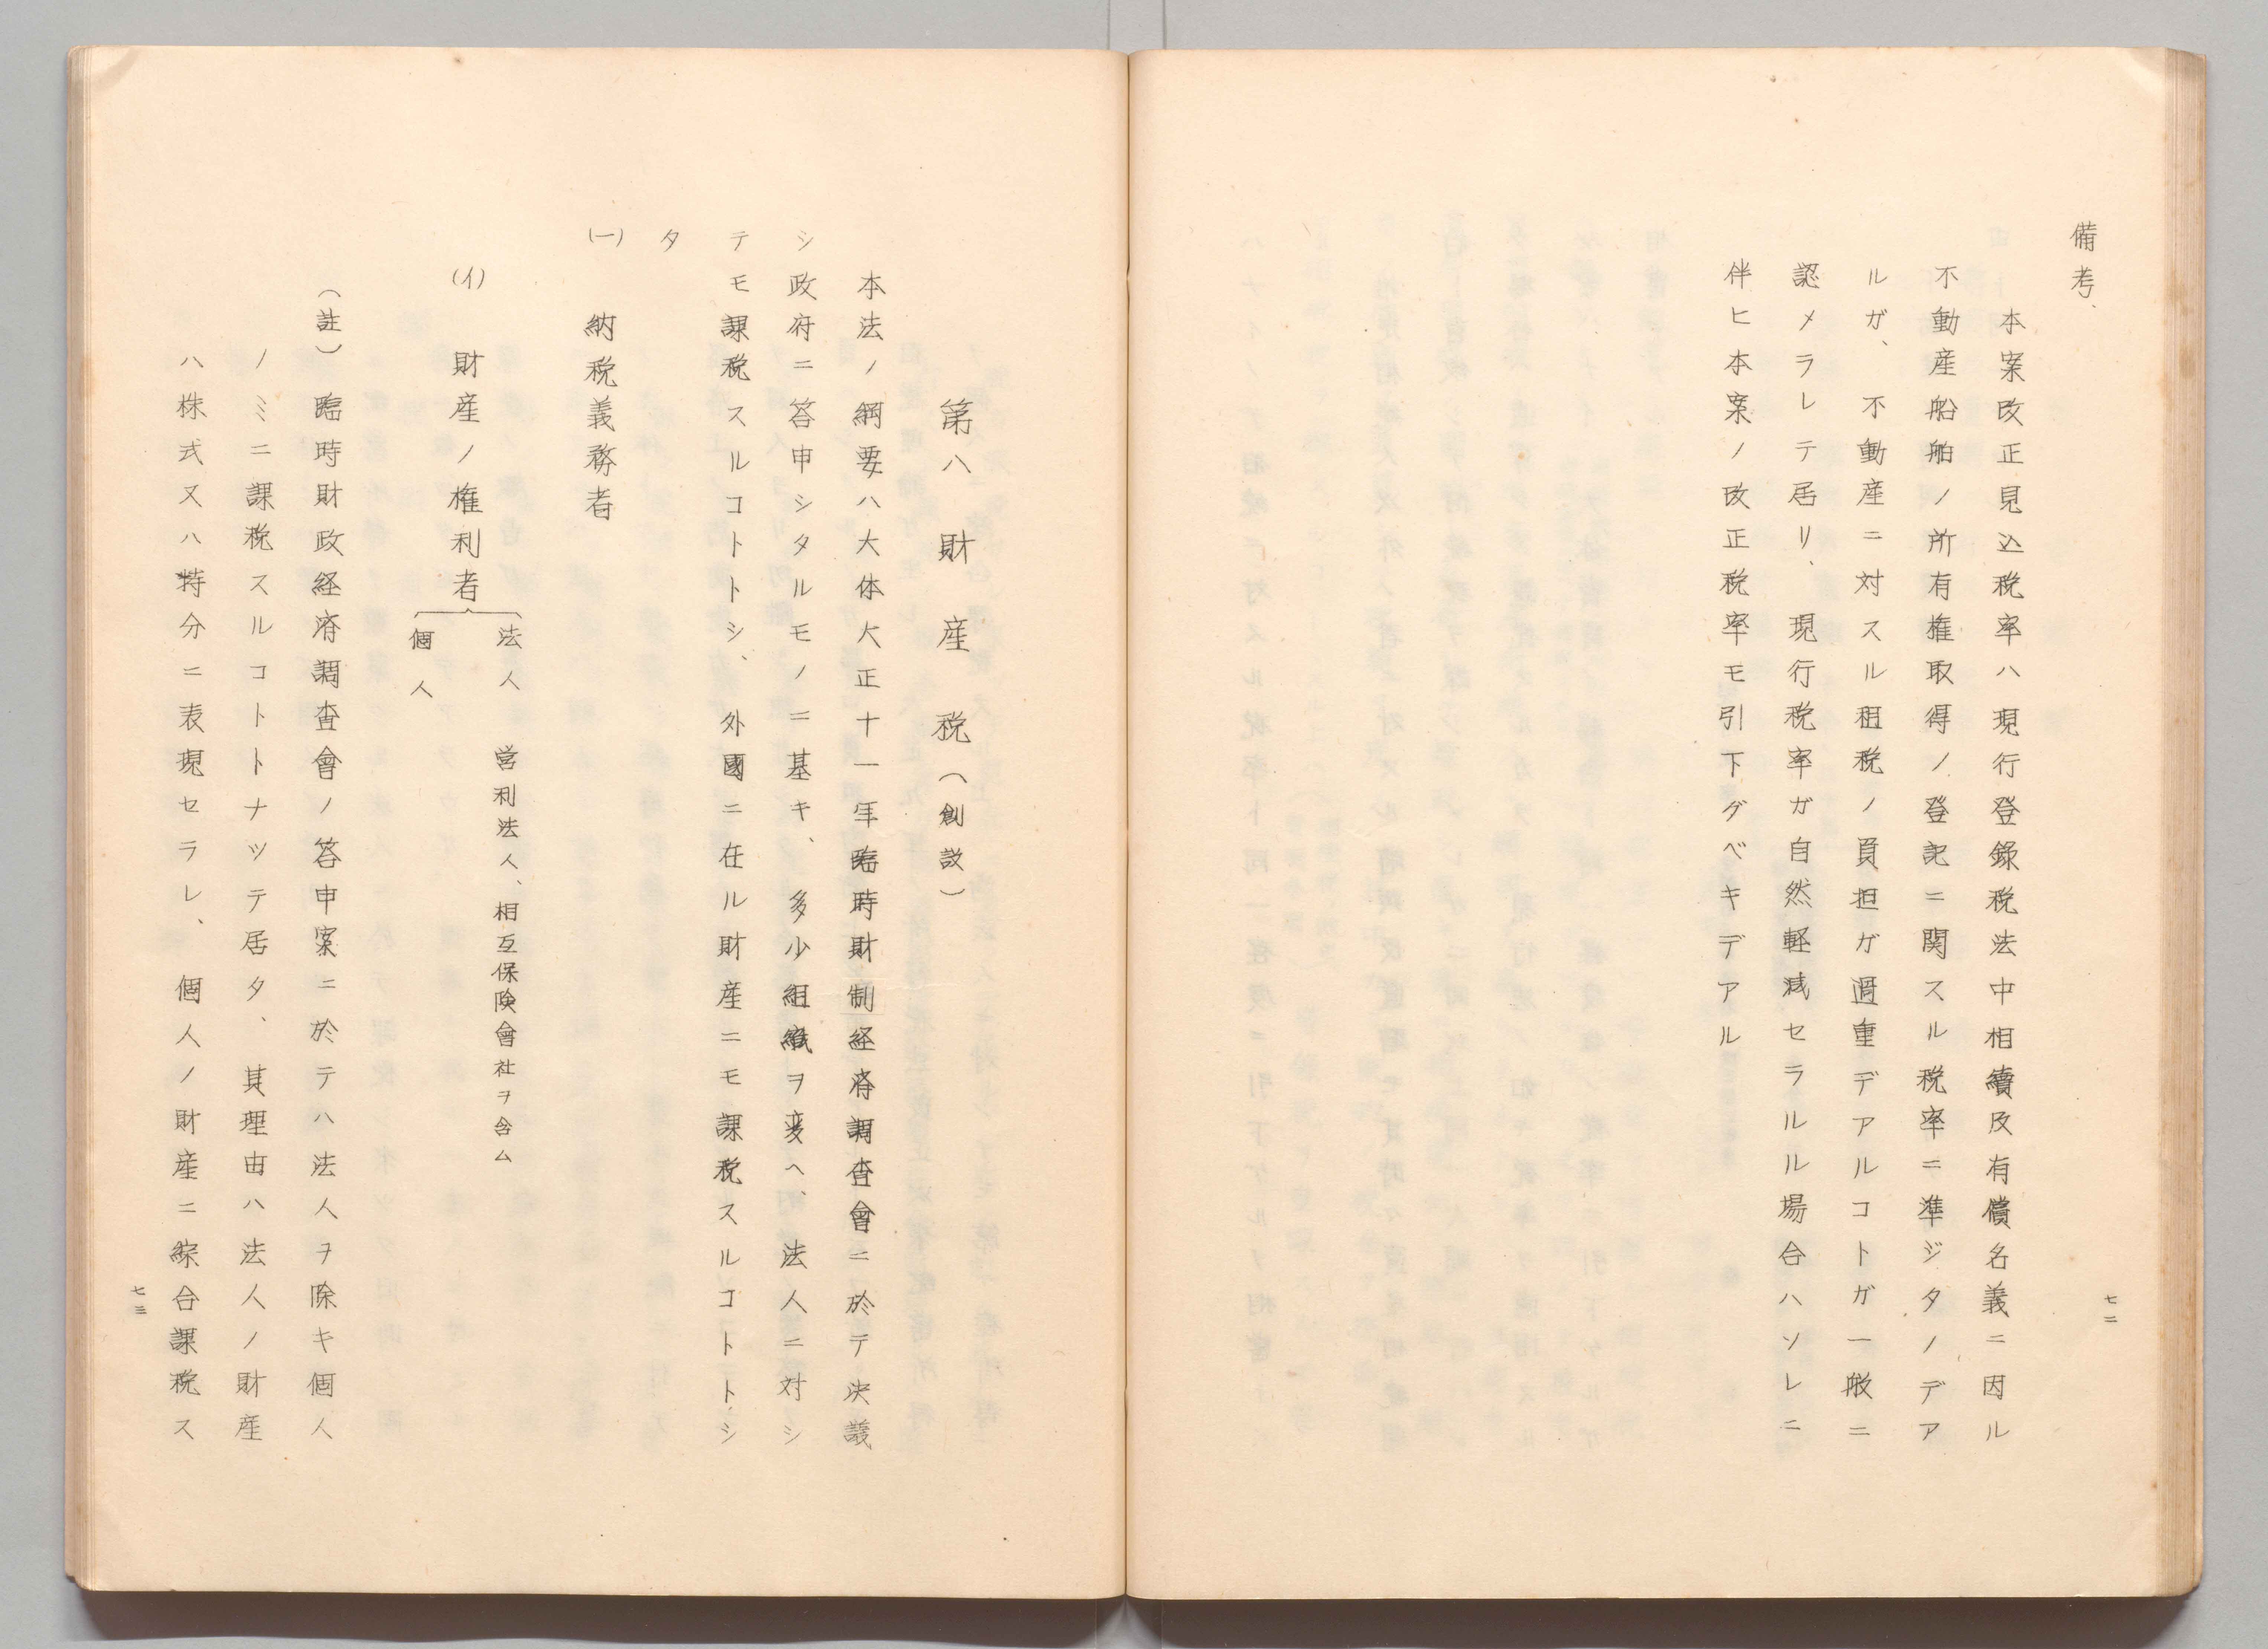 備考、
本案改正見込税率ハ現行登録税法中相續及有償名義ニ因ル
不動産船舶ノ所有権取得ノ登記ニ関スル税率ニ準ジタノデア
ルガ、不動産ニ対スル租税ノ負担ガ過重デアルコトガ一般ニ
認メラレテ居リ、現行税率ガ自然軽減セラルル場合ハソレニ
伴ヒ本案ノ改正税率モ引下グベキデアル
七二
第八 財産税（創設）
本法ノ綱要ハ大体大正十一年臨時財制経済調査會ニ於テ決議
シ政府ニ答申シタルモノニ基キ、多少組織ヲ変ヘ、法人ニ対シ
テモ課税スルコトトシ、外國ニ在ル財産ニモ課税スルコトトシ
タ
(一) 納税義務者
(イ) 財産ノ権利者
法人 営利法人、相互保険會社ヲ含ム
個人
（註）臨時財政経済調査會ノ答申案ニ於テハ法人ヲ除キ個人
ノミニ課税スルコトトナツテ居タ、其理由ハ法人ノ財産
ハ株式又ハ持分ニ表現セラレ、個人ノ財産ニ綜合課税ス
七三